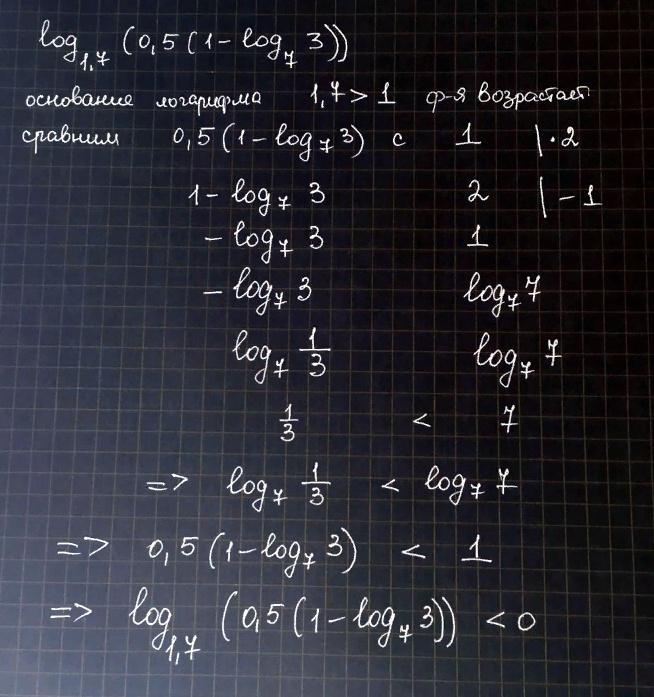 log₁,₇ (0,5(1-log₇ 3))
основание логарифма 1,7 > 1 ф-я возрастает
сравним 0,5(1-log₇3) с 1 |·2
1-log₇ 3 2 |-1
-log₇ 3 1
-log₇ 3 log₇7
log₇ 1/3 log₇ 7
1/3 < 7
=> log₇ 1/3 < log₇ 7
=> 0,5(1-log₇ 3) < 1
=> log₁,₇ (0,5(1-log₇3)) <0